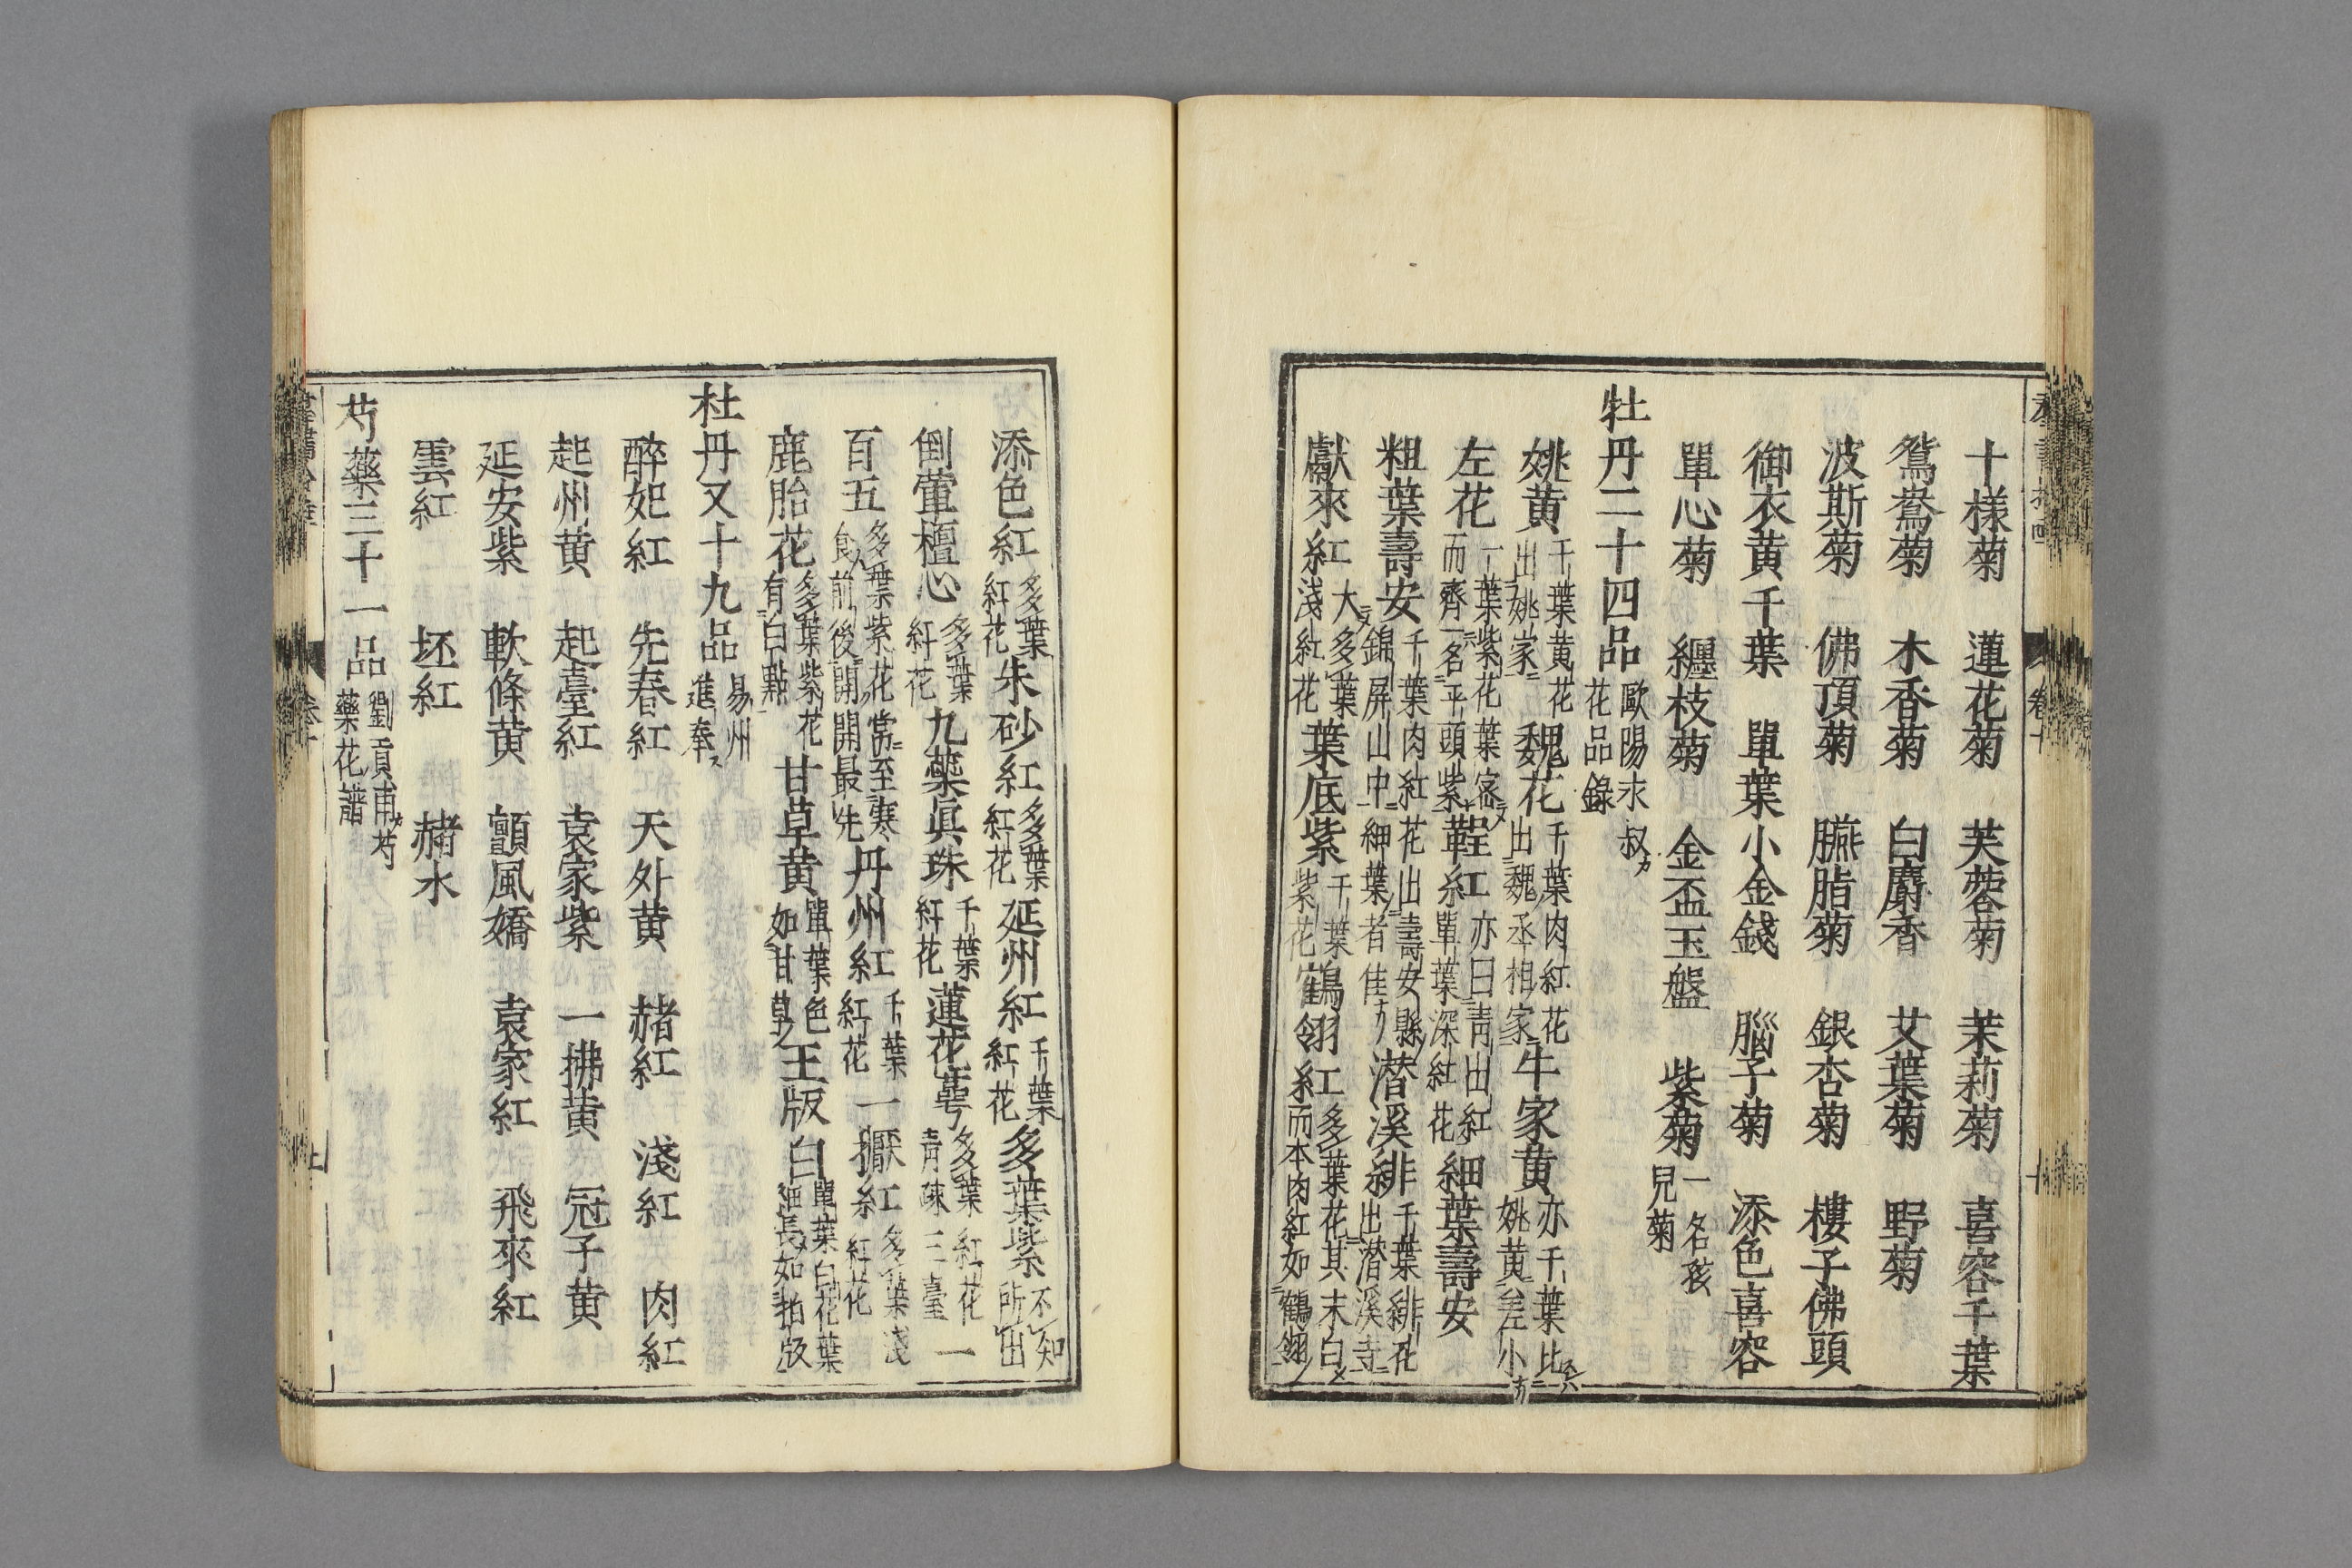 十様菊　蓮花菊　芙蓉菊　茉莉菊　喜容千葉
鴛鴦菊　木香菊　白麝香　艾葉菊　野菊
波斯菊　佛頂菊　臙脂菊　銀杏菊　樓子佛頭
御衣黄千葉　單葉小金錢　腦子菊　添色喜容
單心菊　纏枝菊　金盃玉盤　紫菊一名孩兒菊
牡丹二十四品歐陽永叔花品錄
姚黄千葉黄花出姚家魏花千葉肉紅花出魏丞相家牛家黄亦千葉比姚黄差小
左花一葉紫花葉密而齊一名平頭紫鞓紅亦曰靑出紅單葉深紅花細葉壽安
粗葉壽安千葉肉紅花出壽安縣錦屏山中細葉者佳潜溪緋千葉緋花出潜溪寺
獻來紅大多葉淺紅花葉底紫千葉紫花鶴翎紅多葉花其末白而本肉紅如鶴翎
添色紅多葉紅花朱砂紅多葉紅花延州紅千葉紅花多葉紫不知所出
倒暈檀心多葉紅花九蘂眞珠千葉紅花蓮花萼多葉紅花靑趺三臺一
百五多葉紫花當至寒食前後開開最先丹州紅千葉紅花一擫紅多葉淺紅花
鹿胎花多葉紫花有白點甘草黄單葉色如甘草王版白單葉白花葉細長如拍版
杜丹又十九品易州進奉
醉妃紅　先春紅　天外黄　赭紅　淺紅　肉紅
起州黄　起臺紅　袁家紫　一拂黄　冠子黄
延安紫　軟條黄　顫風嬌　袁家紅　飛來紅
雲紅　坯紅　赭水
芍藥三十一品劉貢甫芍藥花譜
卷十